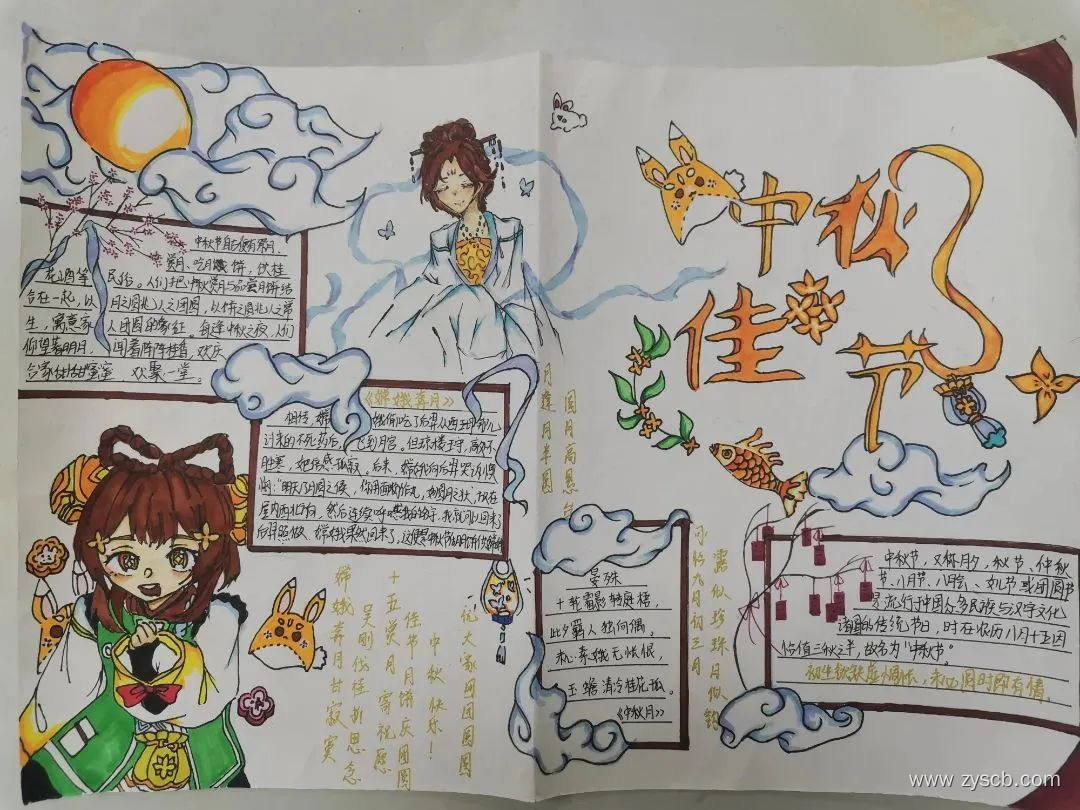 中秋
佳节
中秋节自古便有赏月、
赏月、吃月饼、饮桂
花酒等民俗。人们把中秋赏月与品尝月饼结
合在一起，以月之圆兆人之团圆，以饼之圆兆人之常
生，寓意家人团圆的象征。每逢中秋之夜，人们
仰望着明月，闻着阵阵桂香，欢庆
合家甜甜蜜蜜 欢聚一堂。
《嫦娥奔月》
相传，嫦娥偷吃了后羿从西王母那儿
讨来的不死药后，飞到月宫。但琼楼玉宇，高处不
胜寒，她倍感孤寂。后来，嫦娥向后羿哭诉
"明天乃月圆之候，你用面粉作丸，如圆月之状，放在
屋内西北方向，然后连续呼唤我的名字。我就可以回来了
后羿照做，嫦娥果然回来了，
祝大家团团圆圆
中秋快乐！
佳节月饼庆团圆
十五赏月寄祝愿
吴刚伐桂折思念
嫦娥奔月甘寂寞
圆月高悬
月逢月半圆
晏殊
十轮霜影转庭梧，
此夕羁人独向隅。
未必素娥无怅恨，
玉蟾清冷桂花孤。
《中秋月》
露似珍珠月似弓
可怜九月初三
中秋节，又称月夕，秋节、仲秋
节、八月节、八月会、女儿节或团圆节
是流行于中国众多民族与汉字文化
诸国的传统节日，时在农历八月十五因
恰值三秋之半，故名为"中秋节"。
初生欲缺虚惆怅，未必圆时即有情。
www.zyscb.com